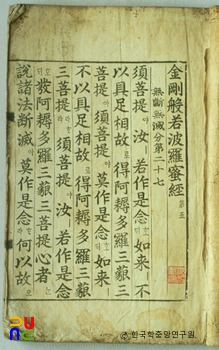 金剛般若波羅蜜經 第五
無斷無滅分第二十七
須菩提 汝 若作是念 如來 不
以具足相故 得阿耨多羅三藐三
菩提 須菩提 莫作是念 如來 不
以具足相故 得阿耨多羅三藐
三菩提 須菩提 汝 若作是念
發阿耨多羅三藐三菩提心者
說諸法斷滅 莫作是念 何以故
©한국학중앙연구원